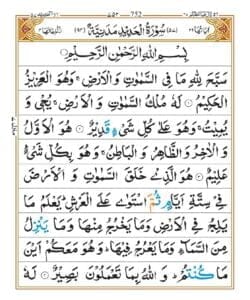 752
سُوْرَةُ الْحَدِيْدِ مَدَنِيَّةٌ
بِسْمِ اللّٰهِ الرَّحْمٰنِ الرَّحِيْمِ
سَبَّحَ لِلّٰهِ مَا فِى السَّمٰوٰتِ وَ الْاَرْضِ ۚ وَهُوَ الْعَزِيْزُ
الْحَكِيْمُ ۝ لَهٗ مُلْكُ السَّمٰوٰتِ وَ الْاَرْضِ ۚ يُحْيٖ وَ
يُمِيْتُ ۚ وَهُوَ عَلٰى كُلِّ شَىْءٍ قَدِيْرٌ ۝ هُوَ الْاَوَّلُ
وَ الْاٰخِرُ وَ الظَّاهِرُ وَ الْبَاطِنُ ۚ وَ هُوَ بِكُلِّ شَىْءٍ
عَلِيْمٌ ۝ هُوَ الَّذِىْ خَلَقَ السَّمٰوٰتِ وَ الْاَرْضَ
فِىْ سِتَّةِ اَيَّامٍ ثُمَّ اسْتَوٰى عَلَى الْعَرْشِ ؕ يَعْلَمُ مَا
يَلِجُ فِى الْاَرْضِ وَمَا يَخْرُجُ مِنْهَا وَمَا يَنْزِلُ
مِنَ السَّمَآءِ وَمَا يَعْرُجُ فِيْهَا ؕ وَهُوَ مَعَكُمْ اَيْنَ
مَا كُنْتُمْ ؕ وَ اللّٰهُ بِمَا تَعْمَلُوْنَ بَصِيْرٌ ۝ لَهٗ